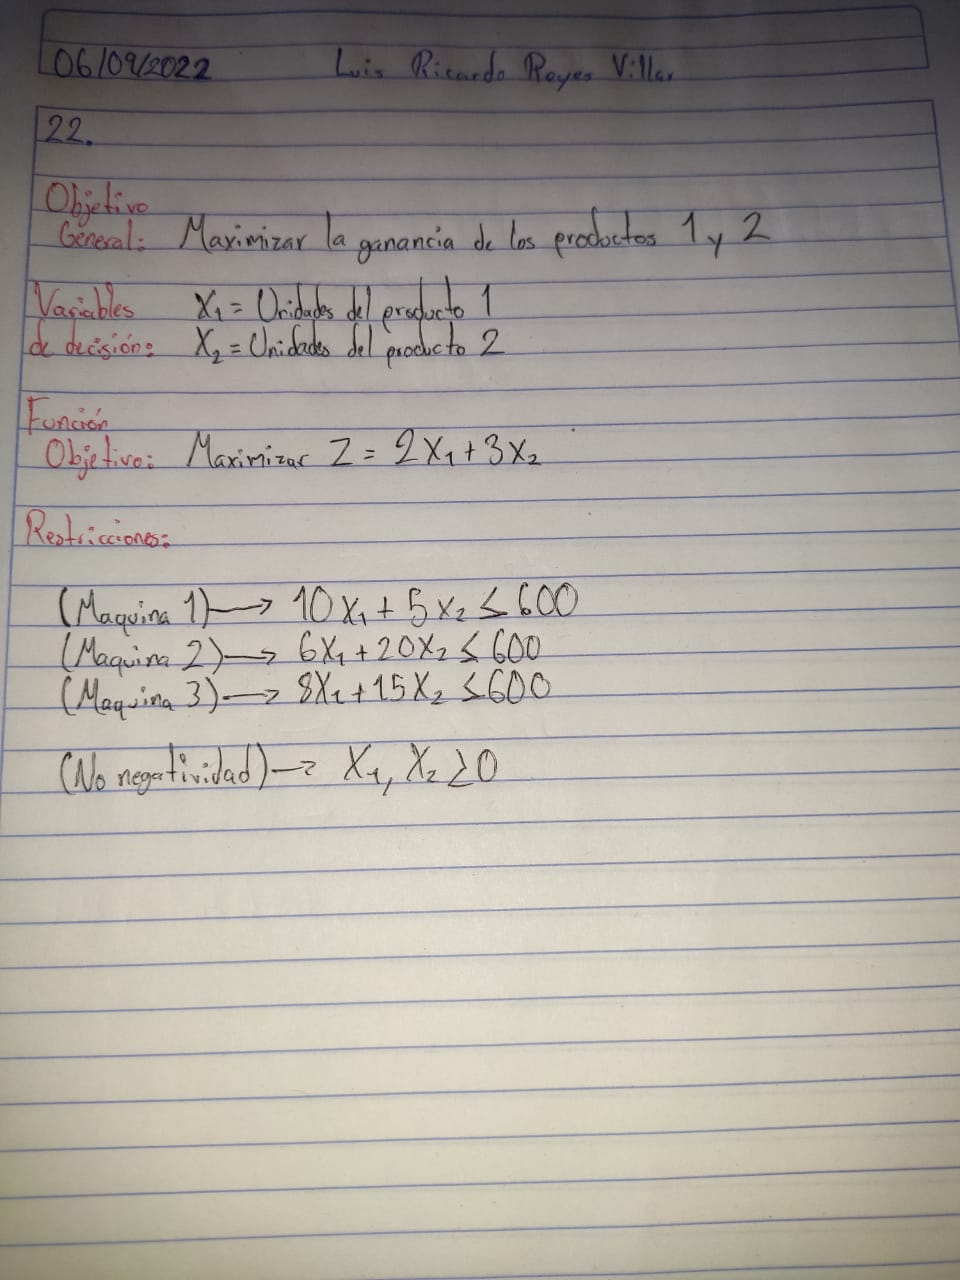 06/09/2022 Luis Ricardo Reyes Villar
22.
Objetivo
General: Maximizar la ganancia de los productos 1 y 2
Variables X₁ = Unidades del producto 1
de decisión: X₂ = Unidades del producto 2
Función
Objetivo: Maximizar Z = 2X₁ + 3X₂
Restricciones:
(Maquina 1) → 10X₁ + 5X₂ ≤ 600
(Maquina 2) → 6X₁ + 20X₂ ≤ 600
(Maquina 3) → 8X₁ + 15X₂ ≤ 600
(No negatividad) → X₁, X₂ ≥ 0